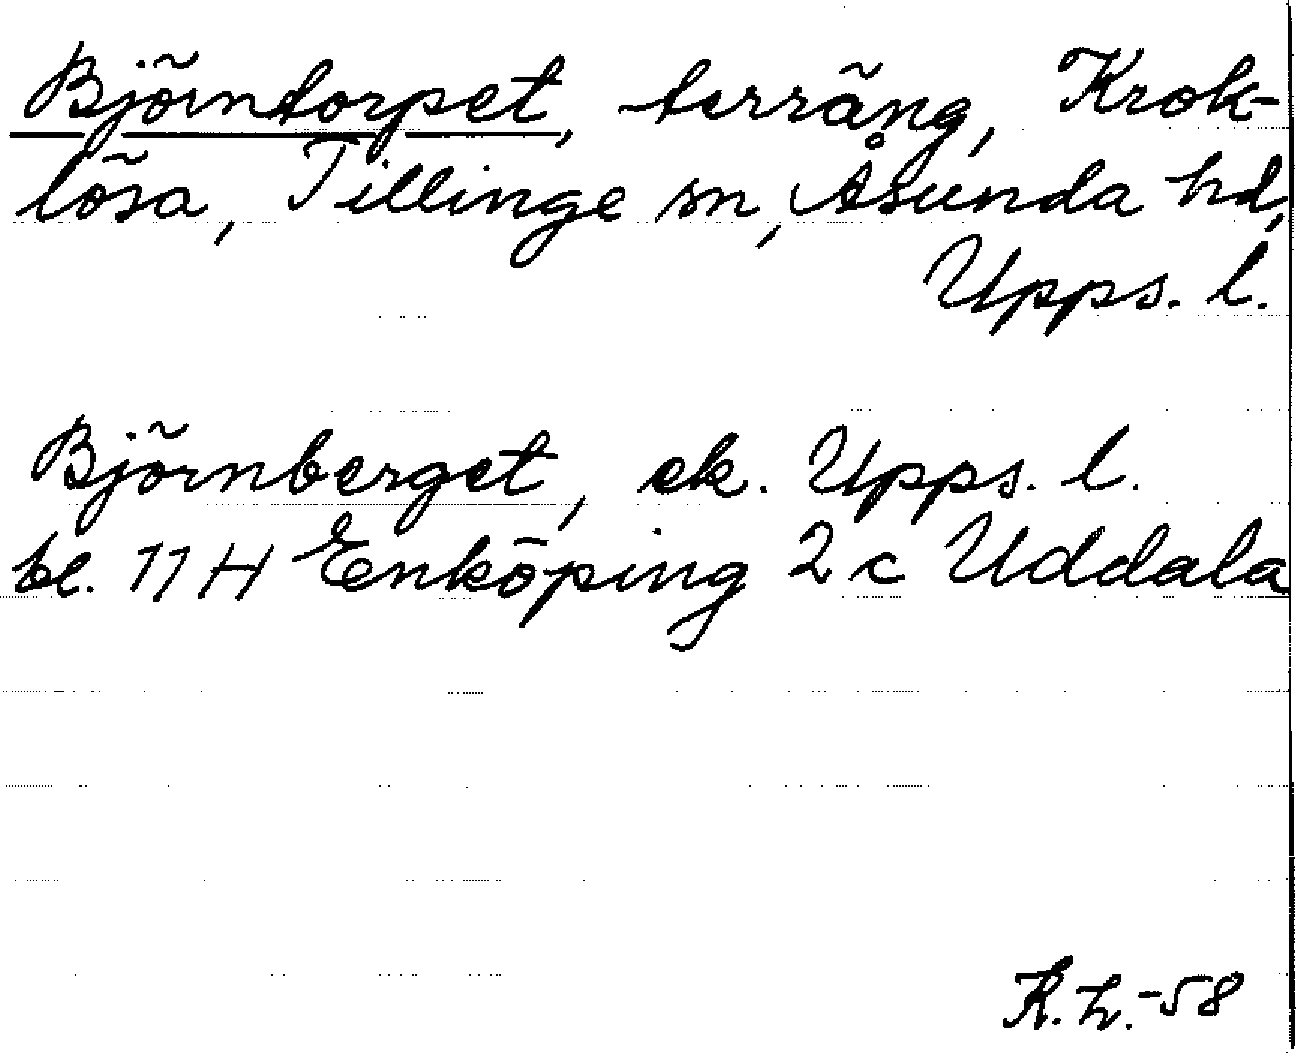 Björntorpet, terräng, Krok-
lösa, Tillinge sn, Åsunda hd,
Upps. l.
Björnberget, ek. Upps. l.
bl. 11 H Enköping 2 c Uddala
R. L. -58